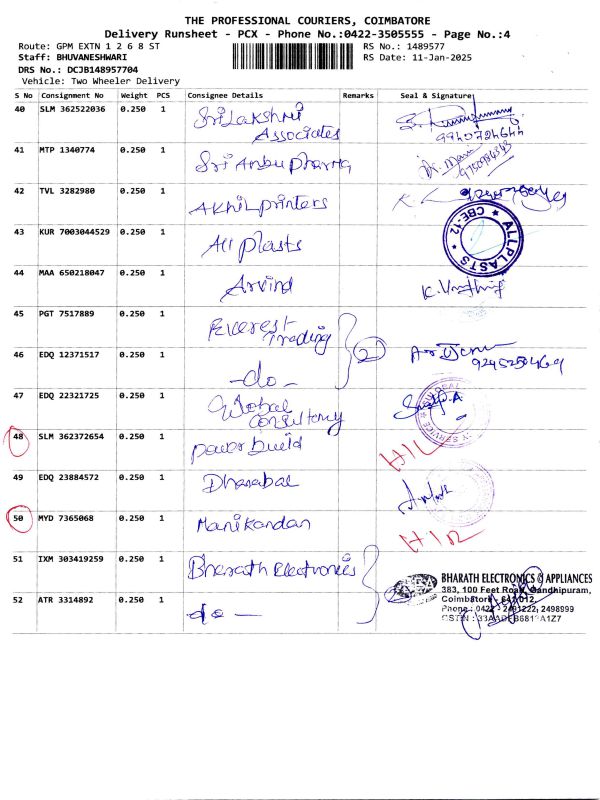 THE PROFESSIONAL COURIERS, COIMBATORE
Delivery Runsheet - PCX - Phone No.:0422-3505555 - Page No.:4
Route: GPM EXTN 1 2 6 8 ST RS No.: 1489577
Staff: BHUVANESHWARI RS Date: 11-Jan-2025
DRS No.: DCJB148957704
Vehicle: Two Wheeler Delivery
S No Consignment No Weight PCS Consignee Details Remarks Seal & Signature
40 SLM 362522036 0.250 1 Sri Lakshmi
Associates
9940724644
41 MTP 1340774 0.250 1 Sri Anbu Pharma
42 TVL 3282980 0.250 1 Akhil printers
43 KUR 7003044529 0.250 1 All Plasts ALLPLASTS CBE-12
44 MAA 650218047 0.250 1 Arvind
45 PGT 7517889 0.250 1 Everest
Trading 2
46 EDQ 12371517 0.250 1 -do-
47 EDQ 22321725 0.250 1 Global
Consultancy
48 SLM 362372654 0.250 1 power build
49 EDQ 23884572 0.250 1 Dhanabal
50 MYD 7365068 0.250 1 Manikandan
51 IXM 303419259 0.250 1 Bharath Electronics BHARATH ELECTRONICS & APPLIANCES
383, 100 Feet Road, Gandhipuram,
52 ATR 3314892 0.250 1 do - Coimbatore - 641 012.
Phone : 0422 - 2491222, 2498999